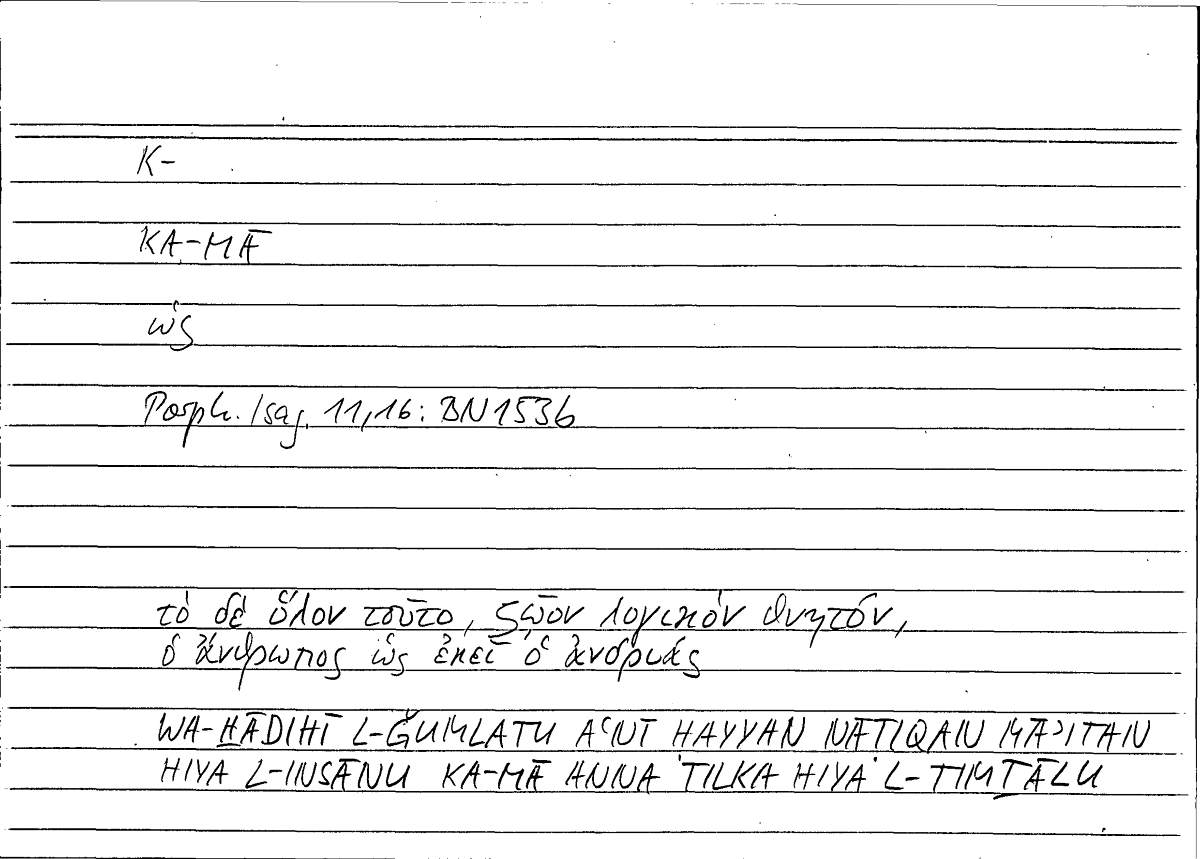 K-
KA-MĀ
ὡς
Porph. Isag. 11,16: BN1536
τὸ δὲ ὅλον τοῦτο, ζῷον λογικόν θνητόν,
ὁ ἄνθρωπος ὡς ἐκεῖ ὁ ἀνδριάς
WA-H̱ĀDIHĪ L-ǦUMLATU AʿNĪ HAYYAN NĀTIQAN MĀʾITAN
HIYA L-INSĀNU KA-MĀ ANNA TILKA HIYA L-TIMṮĀLU